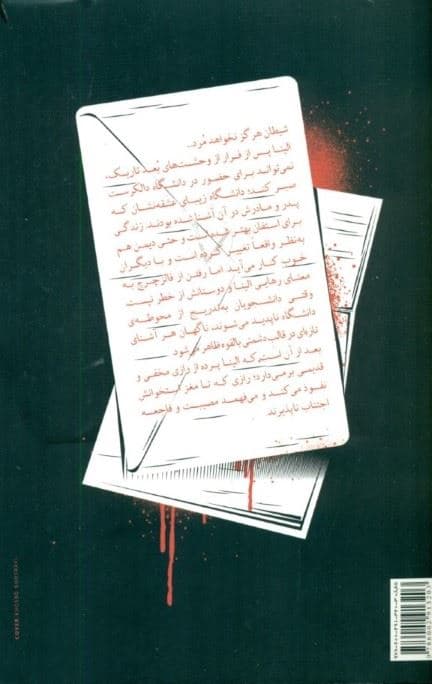 شیطان هرگز نخواهد مُرد..
الینا پس از فرار از وحشت‌های بُعد تاریک،
نمی‌تواند برای حضور در دانشگاه دالکرست
صبر کند؛ دانشگاه زیبای عشقه‌نشان که
پدر و مادرش در آن آشنا شده بودند. زندگی
برای استفان بهتر شده است و حتی دیمن هم
به‌نظر واقعاً تغییر کرده است و با دیگران
خوب کنار می‌آید. اما رفتن از فالزچرچ به
معنای رهایی الینا و دوستانش از خطر نیست
وقتی دانشجویان به‌تدریج از محوطه‌ی
دانشگاه ناپدید می‌شوند، ناگهان هر آشنای
تازه‌ای در قالب دشمنی بالقوه ظاهر می‌شود
بعد از آن است که الینا پرده از رازی مخفی و
قدیمی برمی‌دارد؛ رازی که تا مغز استخوانش
نفوذ می‌کند و می‌فهمد مصیبت و فاجعه
اجتناب ناپذیرند
COVER